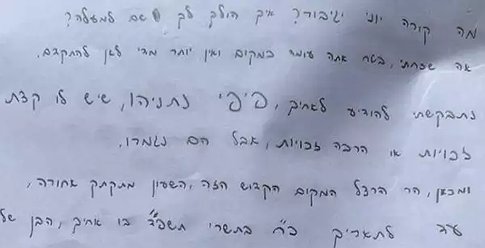 מה קורה יוני יגיבור? איך הולך לך שם למעלה?
אה שכחתי, בטח אתה עומד במקום ואין יותר מדי לאן להתקדם.
נתבקשתי להודיע לאחיך, פיפי נתניהו, שיש לו קצת
זכויות או הרבה זכויות, אבל הם נגמרו.
ומכאן, הר הרצל המקום הקדוש הזה, השעון מתקתק אחורה,
עד לתאריך כ"ח בתשרי תשפ"ד בו אחיך, הבן של